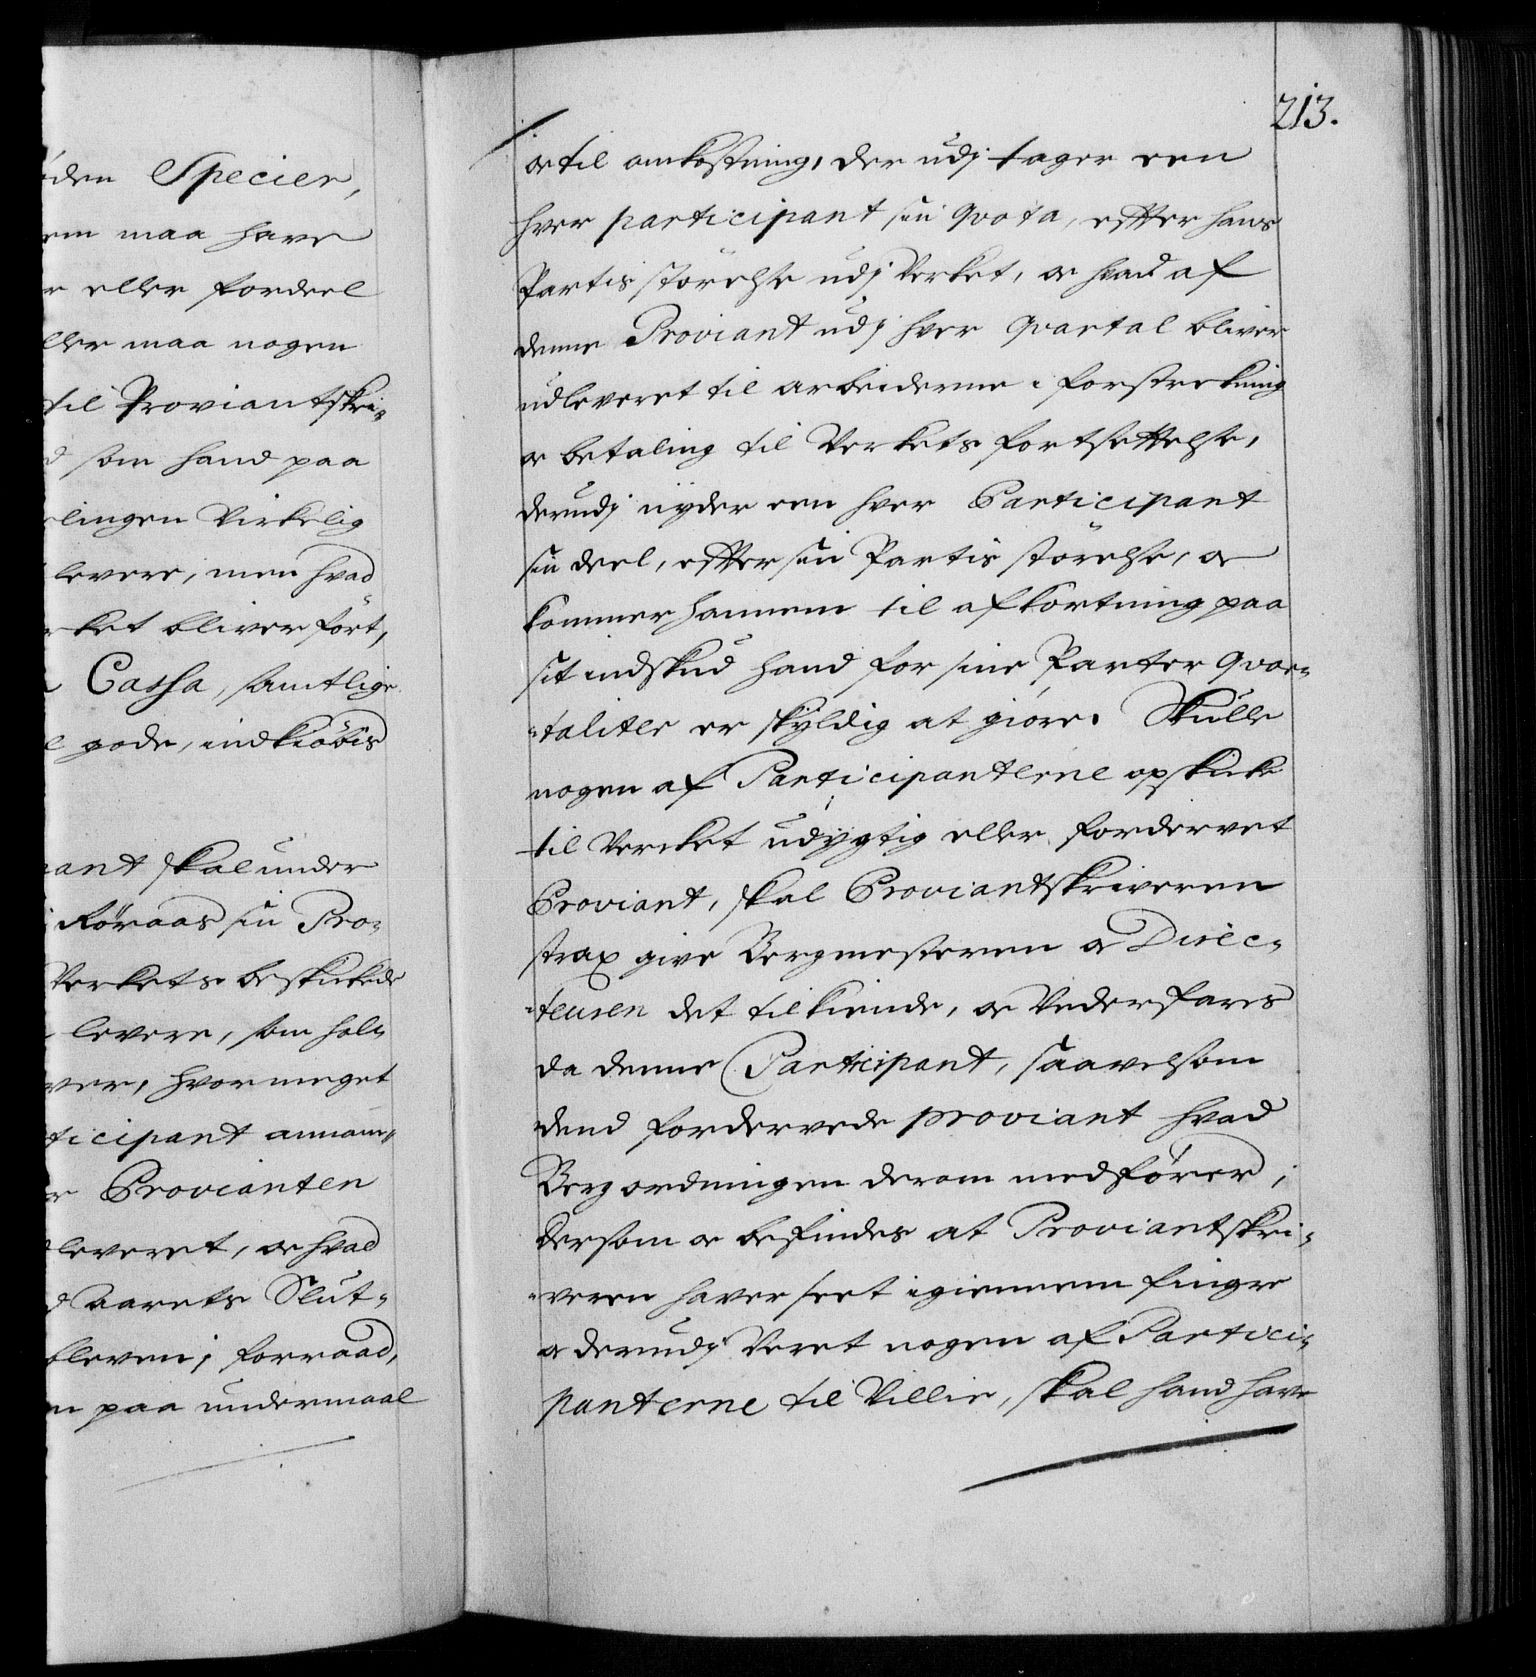 öden Specier,
em maa have
r eller fordeel
ller maa nogen
til Proviantskri-
d som hand paa
elingen Virkelig
levere, men hvad
rket bliver fört,
Cassa, samtlige
l gode, indkiöbis
nant skal under
Röraas sin Pro-
Verkets beskikede
levere, som hol-
ver, hvor meget
ticipant annam-
r Provianten
leveret, oc hvad
d Aarets Slut-
bleven i forraad,
m paa undermaal
213.
oc til omkostning, der udj tager een
hver participant sin qvota, effter hans
Partis störelse udj Verket, oc hvad af
denne Proviant udj hver Qvartal bliver
udleveret til arbeiderne i forstrekning
oc betaling til Verkets fortsettelse,
derudj nyder een hver Participant
sin deel, effter sin Partis störelse, oc
kommer hannem til afkortning paa
sit indskud hand for sine Parter qvar-
taliter er skyldig at giöre. Skulle
nogen af Participanterne opskicke
til Vercket udygtig eller fordervet
Proviant, skal Proviantskriveren
strax give Bergmesteren oc Direc-
teuren det tilkiende, oc Vederfares
da denne Participant, saavelsom
dend fordervede proviant hvad
Bergordningen derom medförer,
dersom oc befindes at Proviantskri-
veren haver seet igiennem fingre
oc derudj Veret nogen af Partici-
panterne til Villie, skal hand have